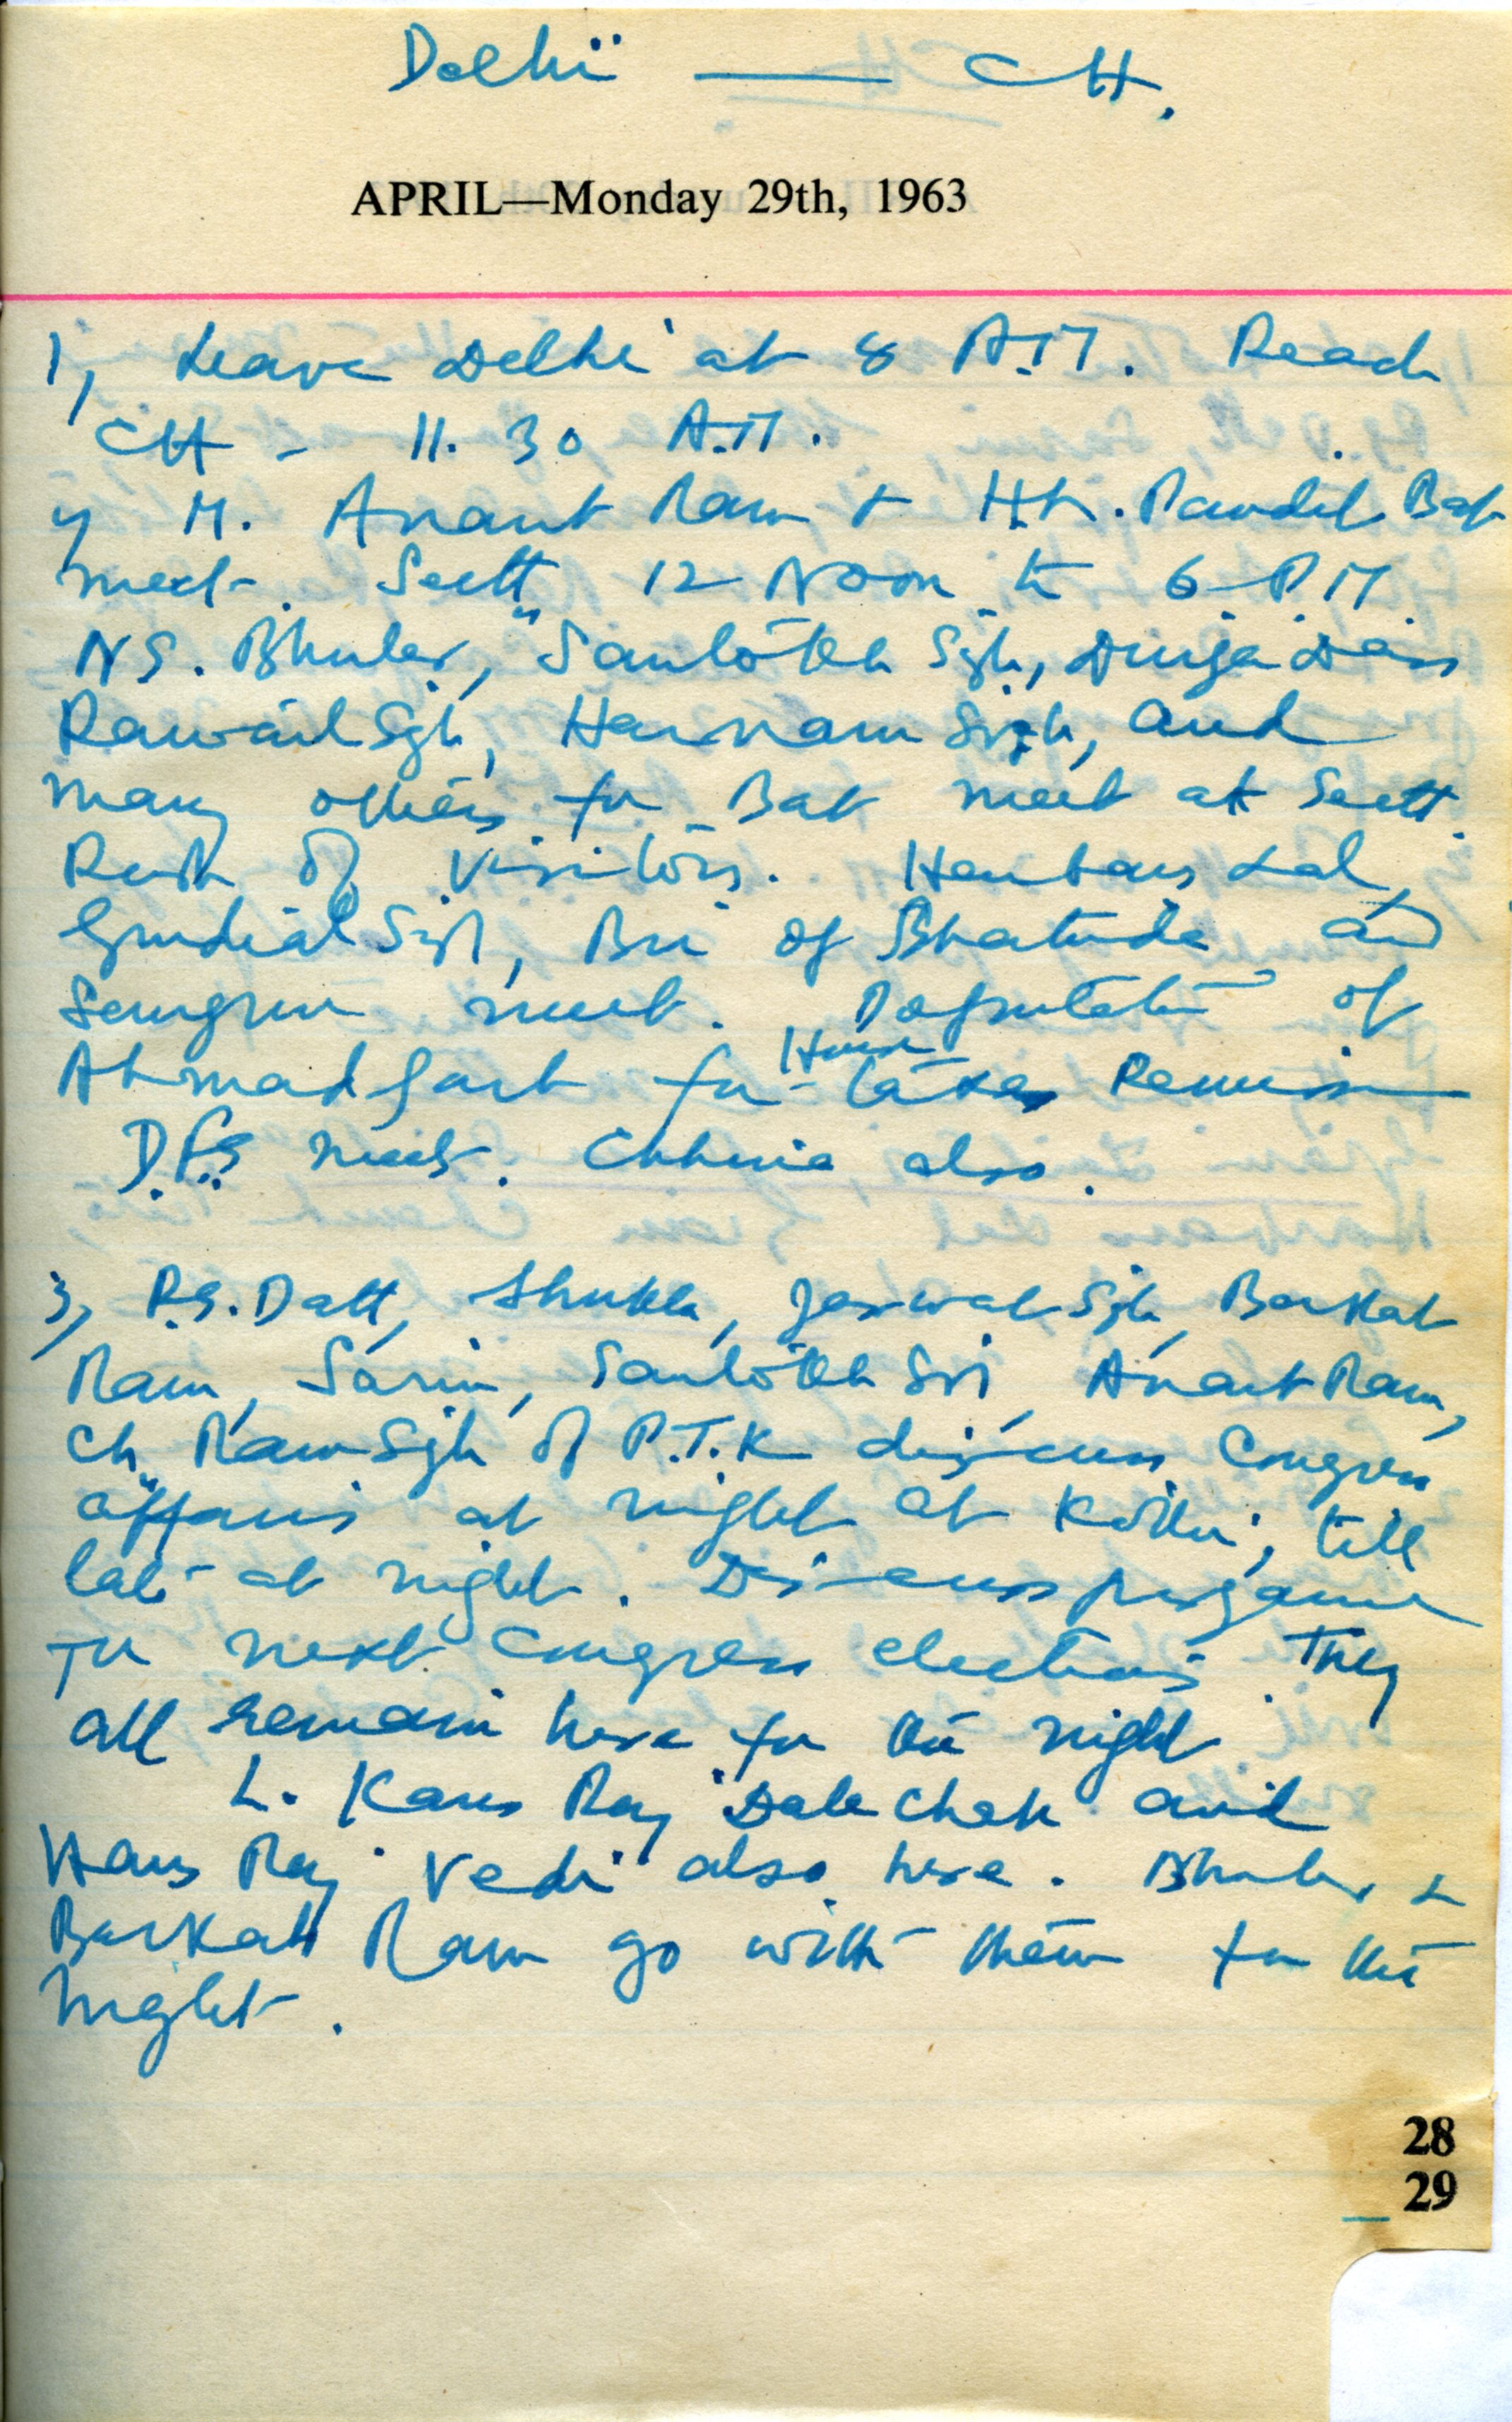 Delhi — CH.
APRIL—Monday 29th, 1963
1, Leave Delhi at 8 A.M. Reach
CH - 11.30 A.M.
M. Anant Ram +
meet. Sectt 12 Noon to 6 P.M.
NS. Bhuler, Santokh Sgh, Durga Dass
Rawail Sgh, Harnam Singh, and
many others for meet at Sectt.
Rush of Visitors. Harbans Lal,
Gurdial Sigh, Bri of Bhatinda and
Sangrur meet. Deputation of
Ahmadgarh for House taxes Remission
D.C.S meet. Chhina also.
3, P.S. Datt, Shukla, Jaswat Sgh, Barkat
Ram, Sarin, Santokh Sri, Anant Ram,
Ch Ram Sgh of P.T.K discuss Congress
affairs at night at Kothi, till
late at night. Discuss programme
for next Congress elections. They
all remain here for the night
L. Kans Raj Dalechak and
Hans Raj Vedi also here. Bhuler &
Barkat Ram go with them for the
night.
28
29